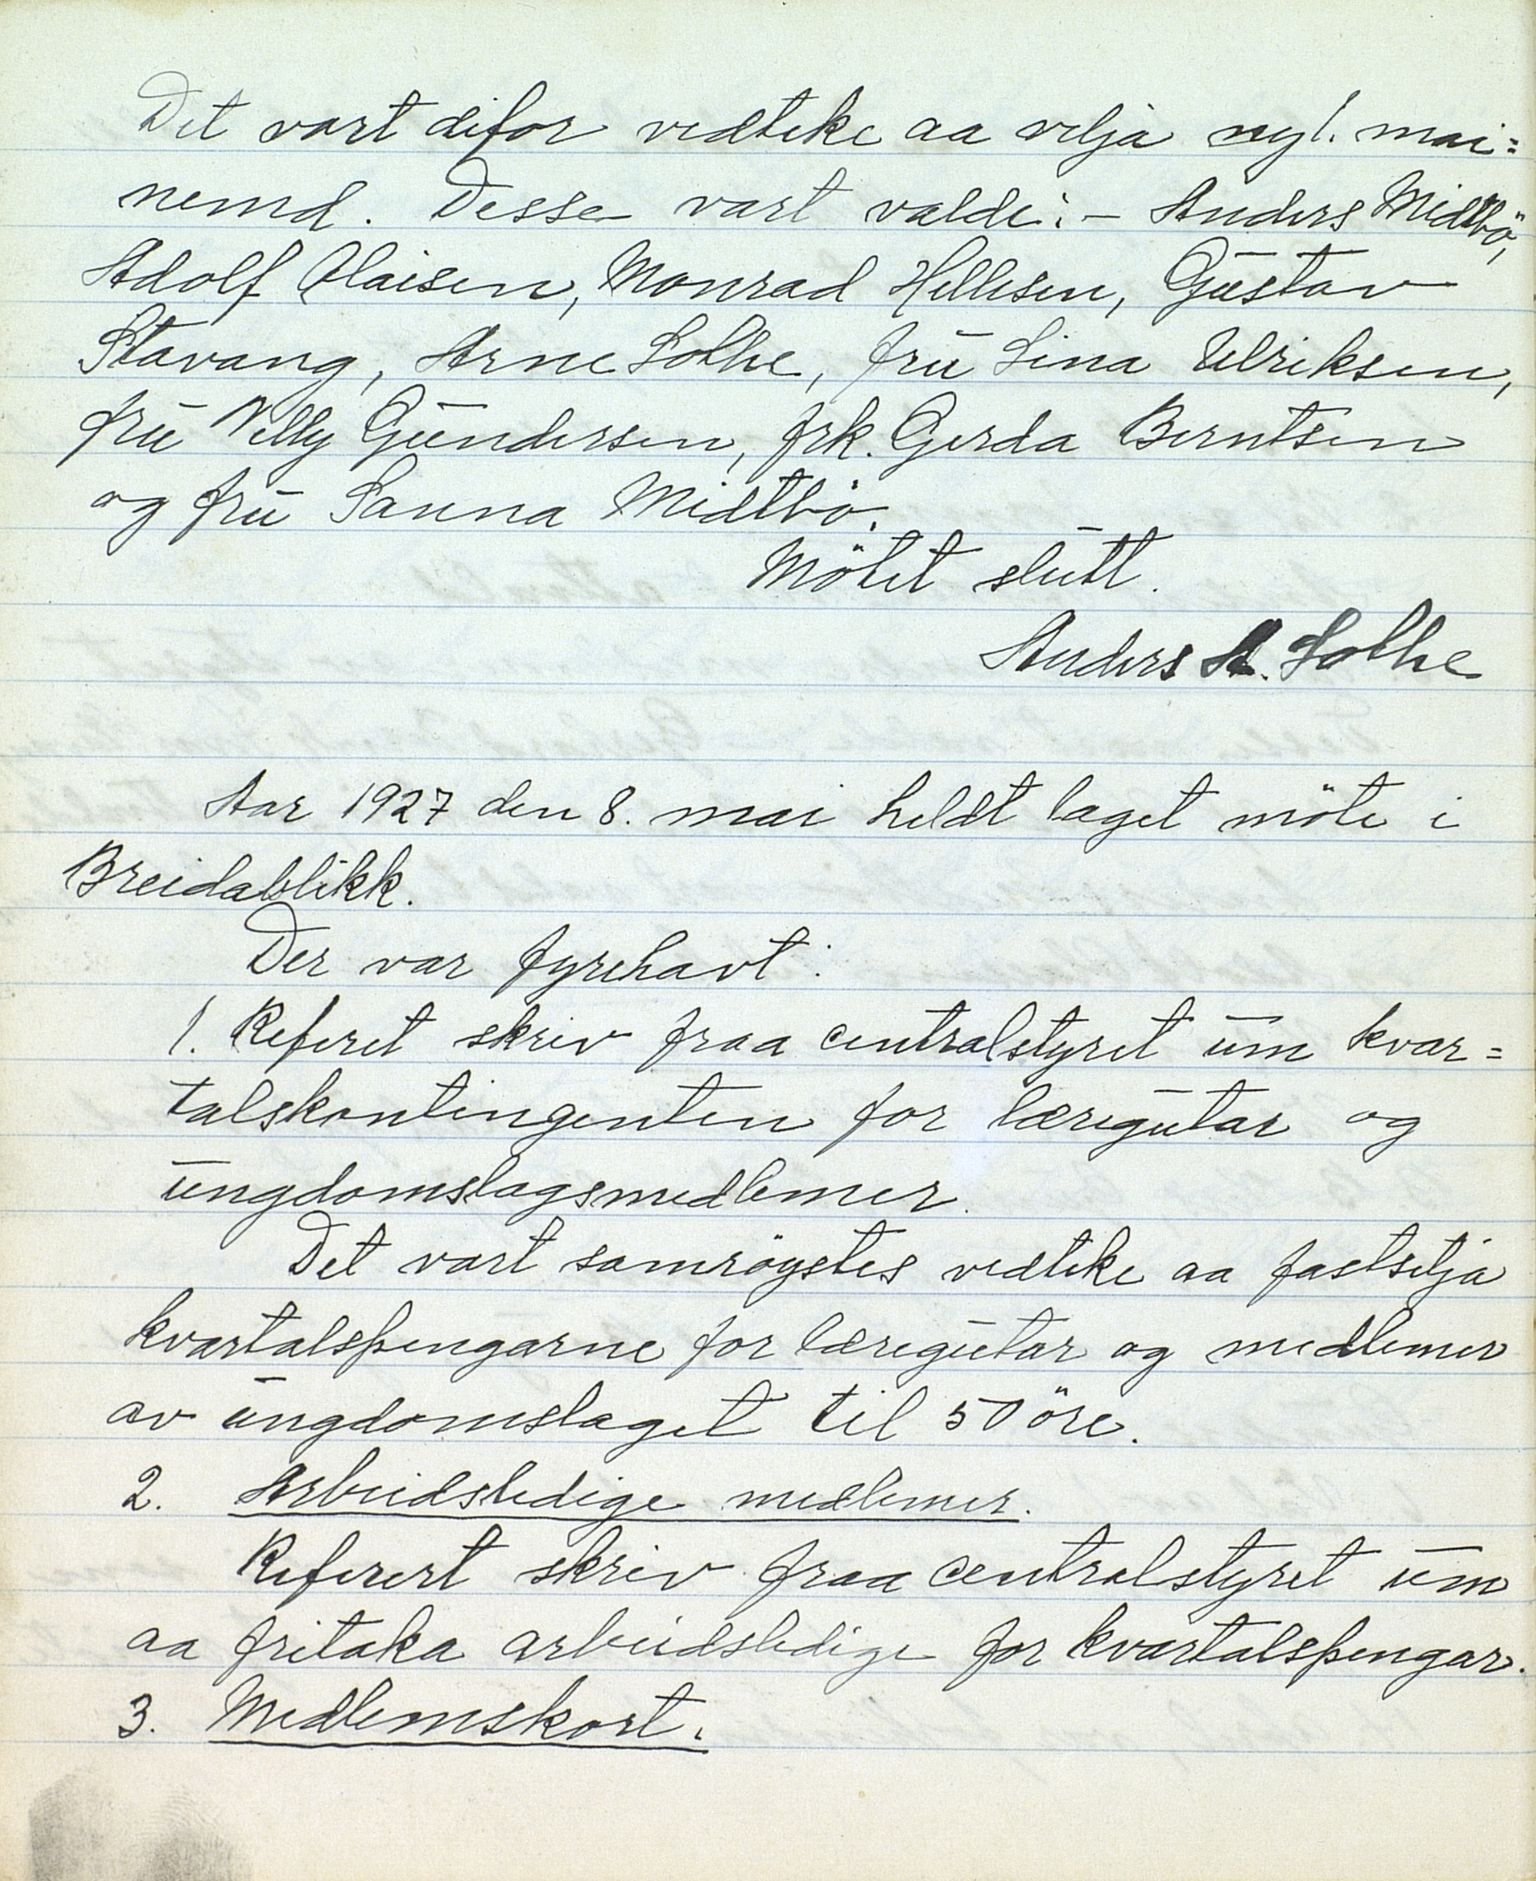 Det vart difor vedteke aa velja ny 1. mai=
nemd. Desse vart valde: - Anders Midtbö,
Adolf Claisen, Monrad Hellesen, Gustav
Stavang, Arne Solhe, fru Lina Ulriksen,
fru Nelly Gundersen, frk. Gerda Berntsen
og fru Sanna Midtbö.
Mötet slutt.
Anders A. Solhe
Aar 1927 den 8. mai heldt laget möte i
Breidablikk.
Der var fyrehavt:
1. Referet skriv fraa centralstyret um kvar=
talskontingenten for læregutar og
ungdomslagsmedlemer.
Det vart samröystes vedteke aa fastsetja
kvartalspengarne for læregutar og medlemer
av ungdomslaget til 50 öre.
2. Arbeidsledige medlemer.
Referert skriv fraa centralstyret um
aa fritaka arbeidsledige for kvartalspengar.
3. Medlemskort.